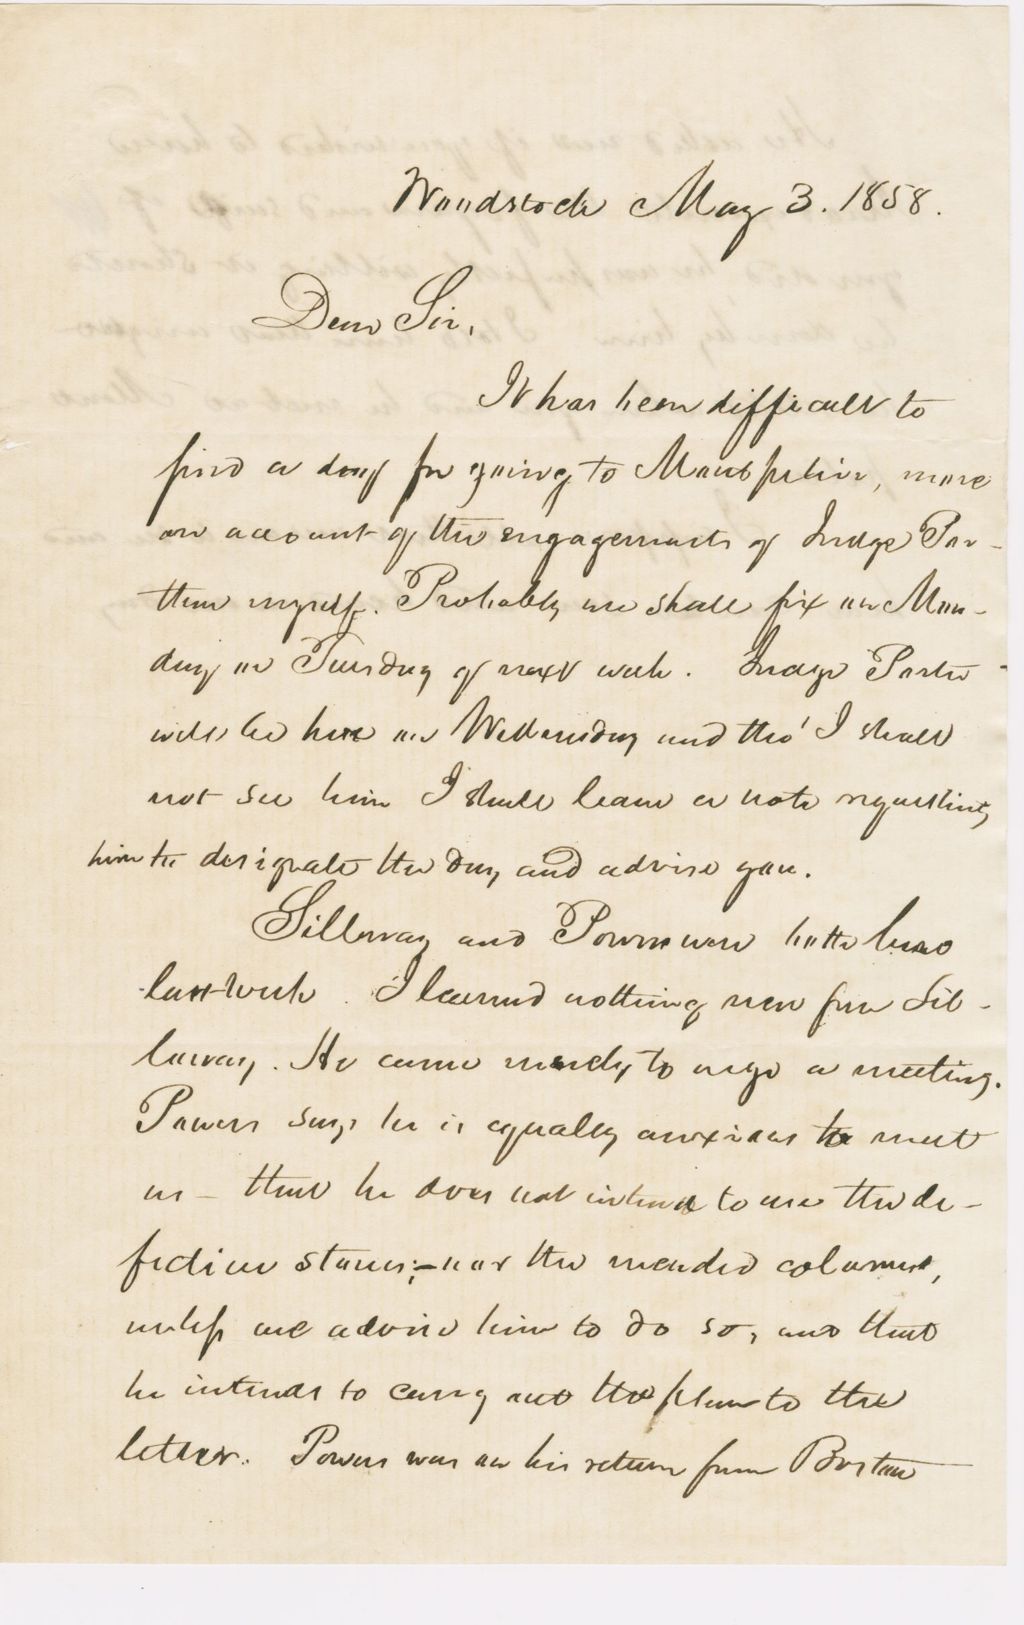 Woodstock May 3. 1858.
Dear Sir,
It has been difficult to
find a day for going to Montpelier, more
on account of the engagements of Judge Por-
ter myself. Probably we shall fix on Mon-
day or Tuesday of next week. Judge Porter
will be here on Wednesday and tho' I shall
not see him I shall leave a note requesting
him to designate the day and advise you.
Silloway and Powers were both here
last week. I learned nothing new from Sil-
loway. He came merely to urge a meeting.
Powers says he is equally anxious to meet
us – that he does not intend to use the de-
fective stones; – nor the mended columns,
unless we advise him to do so, and that
he intends to carry out the plan to the
letter. Powers was on his return from Boston